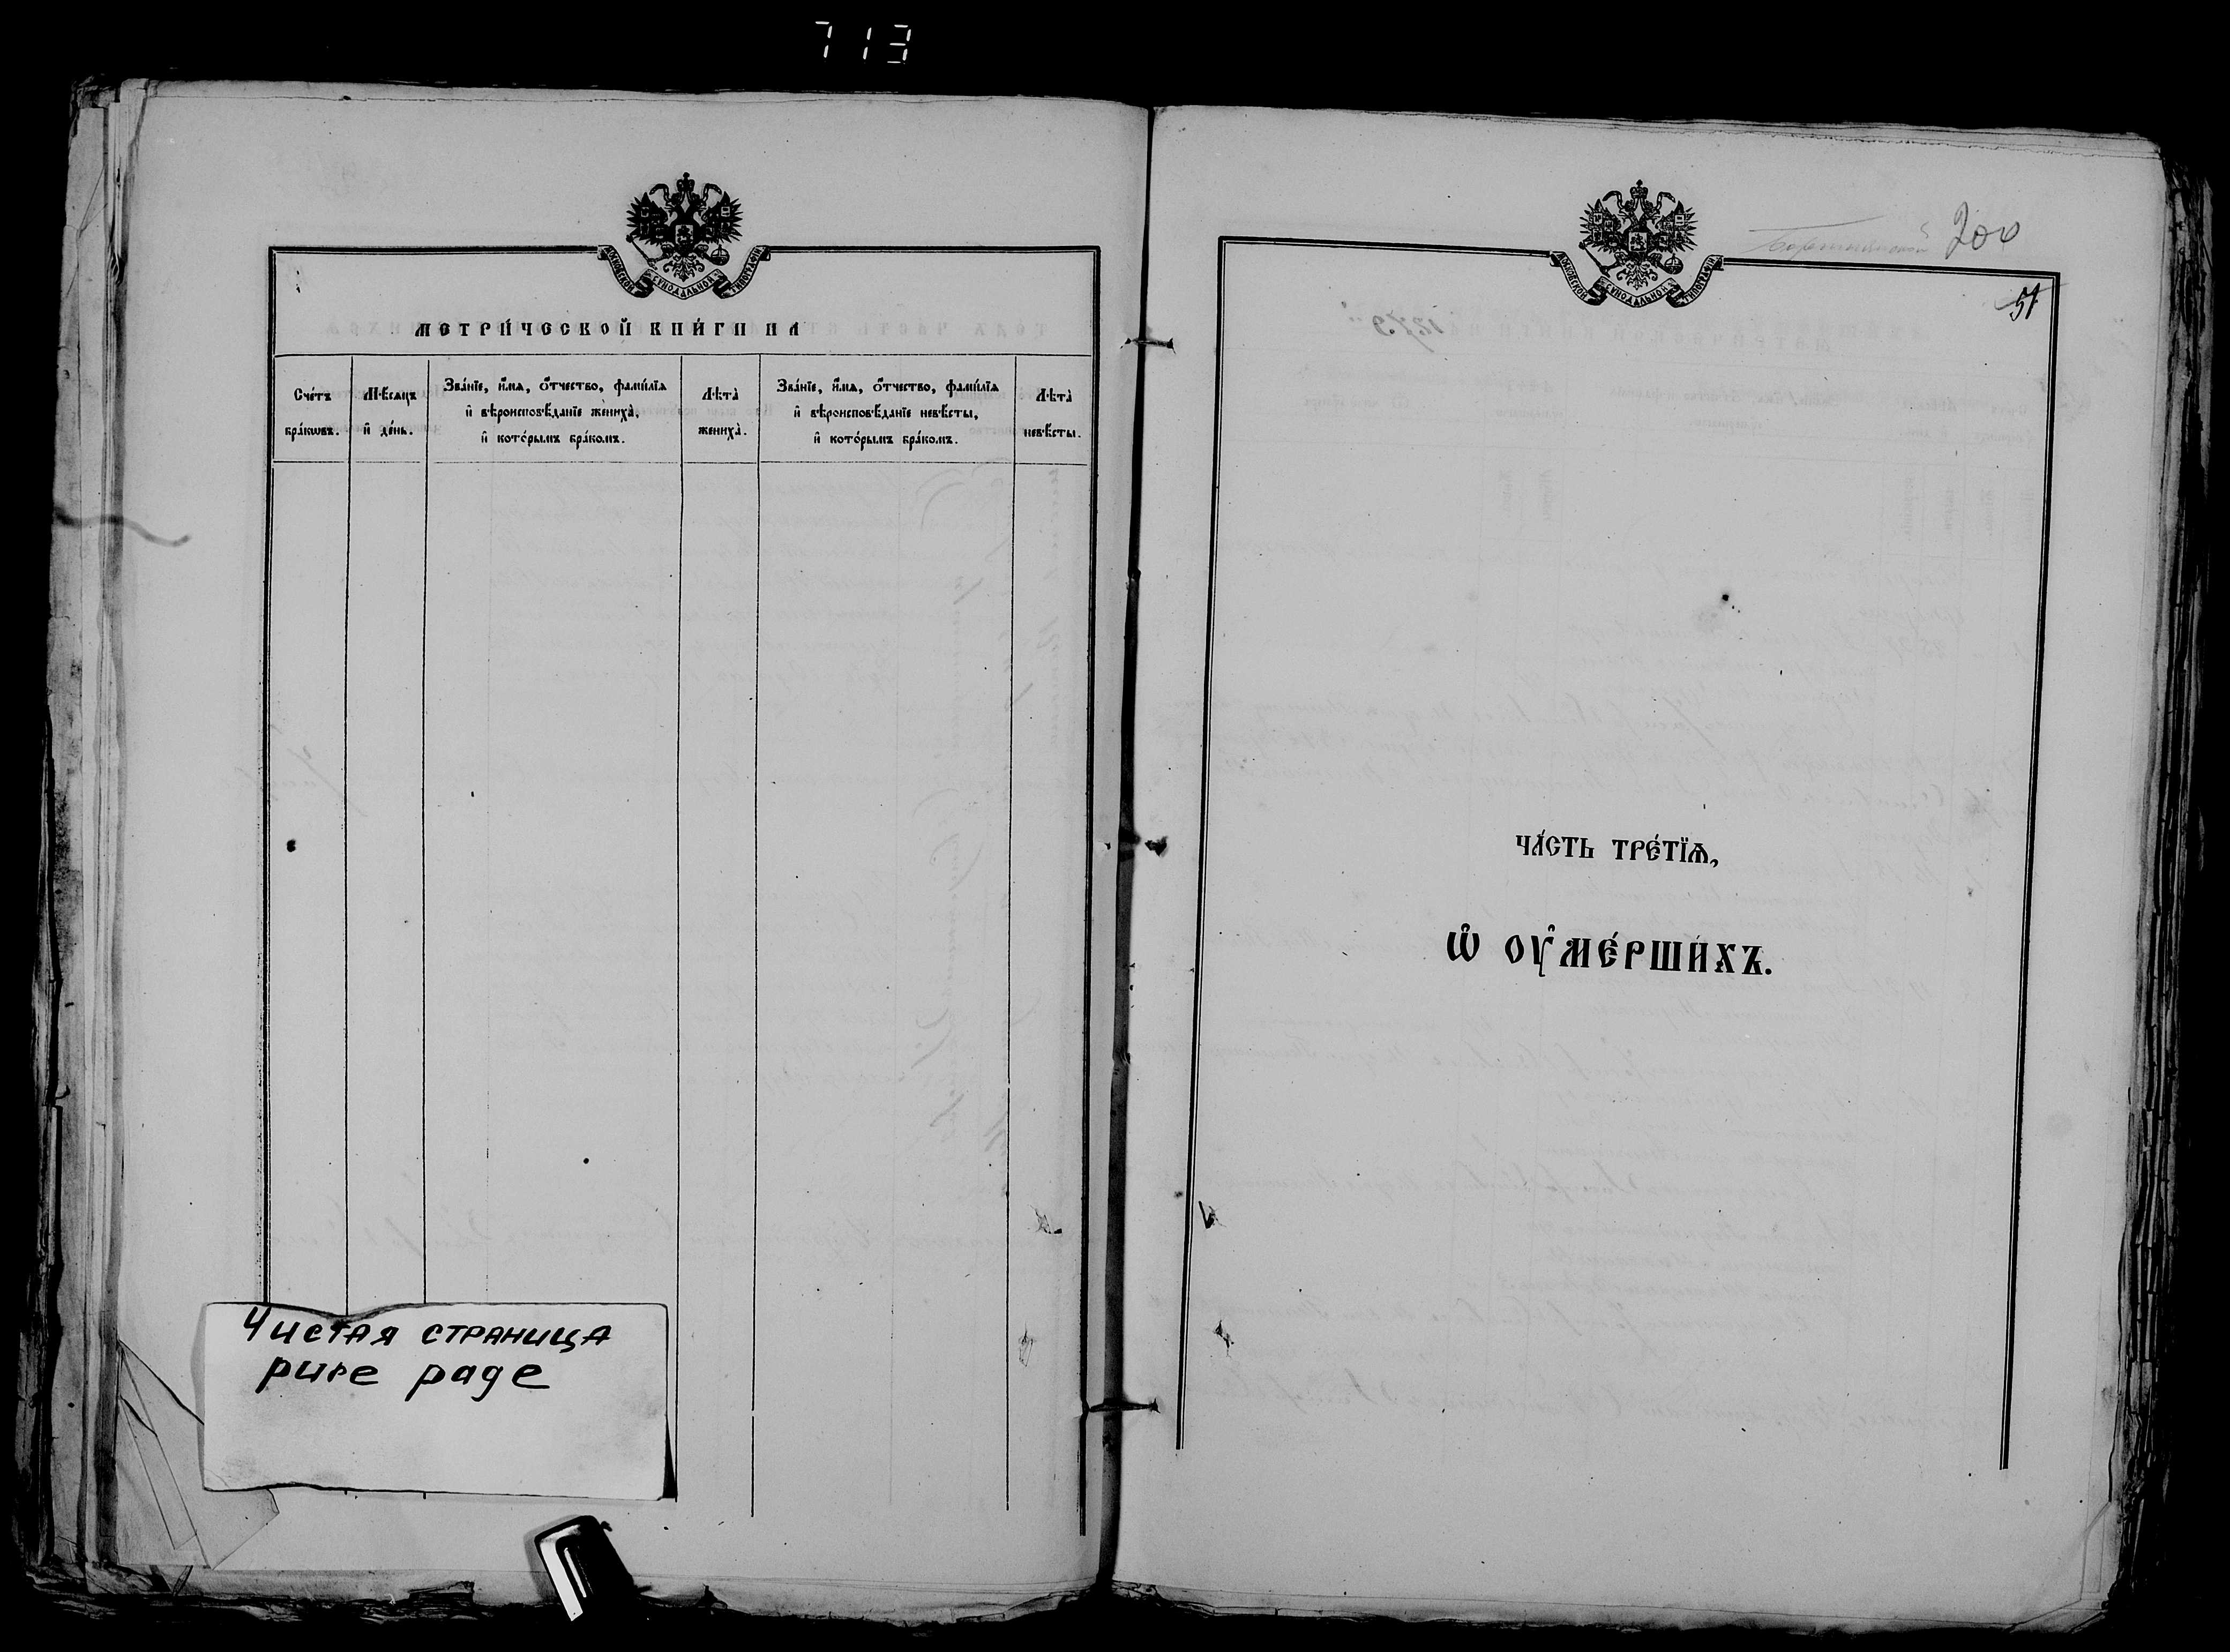 713
МОСКОВСКОЙ СѴНОДАЛЬНОЙ ТИПОГРАФІИ
МЕТРИ́ЧЕСКОЙ КНИ́ГИ НА
Сче́тъ бра́кѡвъ.
Мѣ́сяцъ и҆ де́нь.
Зва́нїе, и҆́мѧ, ѻ҆́тчество, фами́лїѧ
и҆ вѣроисповѣ́данїе жениха̀,
и҆ кото́рымъ бра́комъ.
Лѣта̀
жениха̀.
Зва́нїе, и҆́мѧ, ѻ҆́тчество, фами́лїѧ
и҆ вѣроисповѣ́данїе невѣ́сты,
и҆ кото́рымъ бра́комъ.
Лѣта̀
невѣ́сты.
Чистая страница
pure page
200
МОСКОВСКОЙ СѴНОДАЛЬНОЙ ТИПОГРАФІИ
51
ЧА́СТЬ ТРЕ́ТЇѦ,
Ѡ҆ ОУ҆МЕ́РШИХЪ.